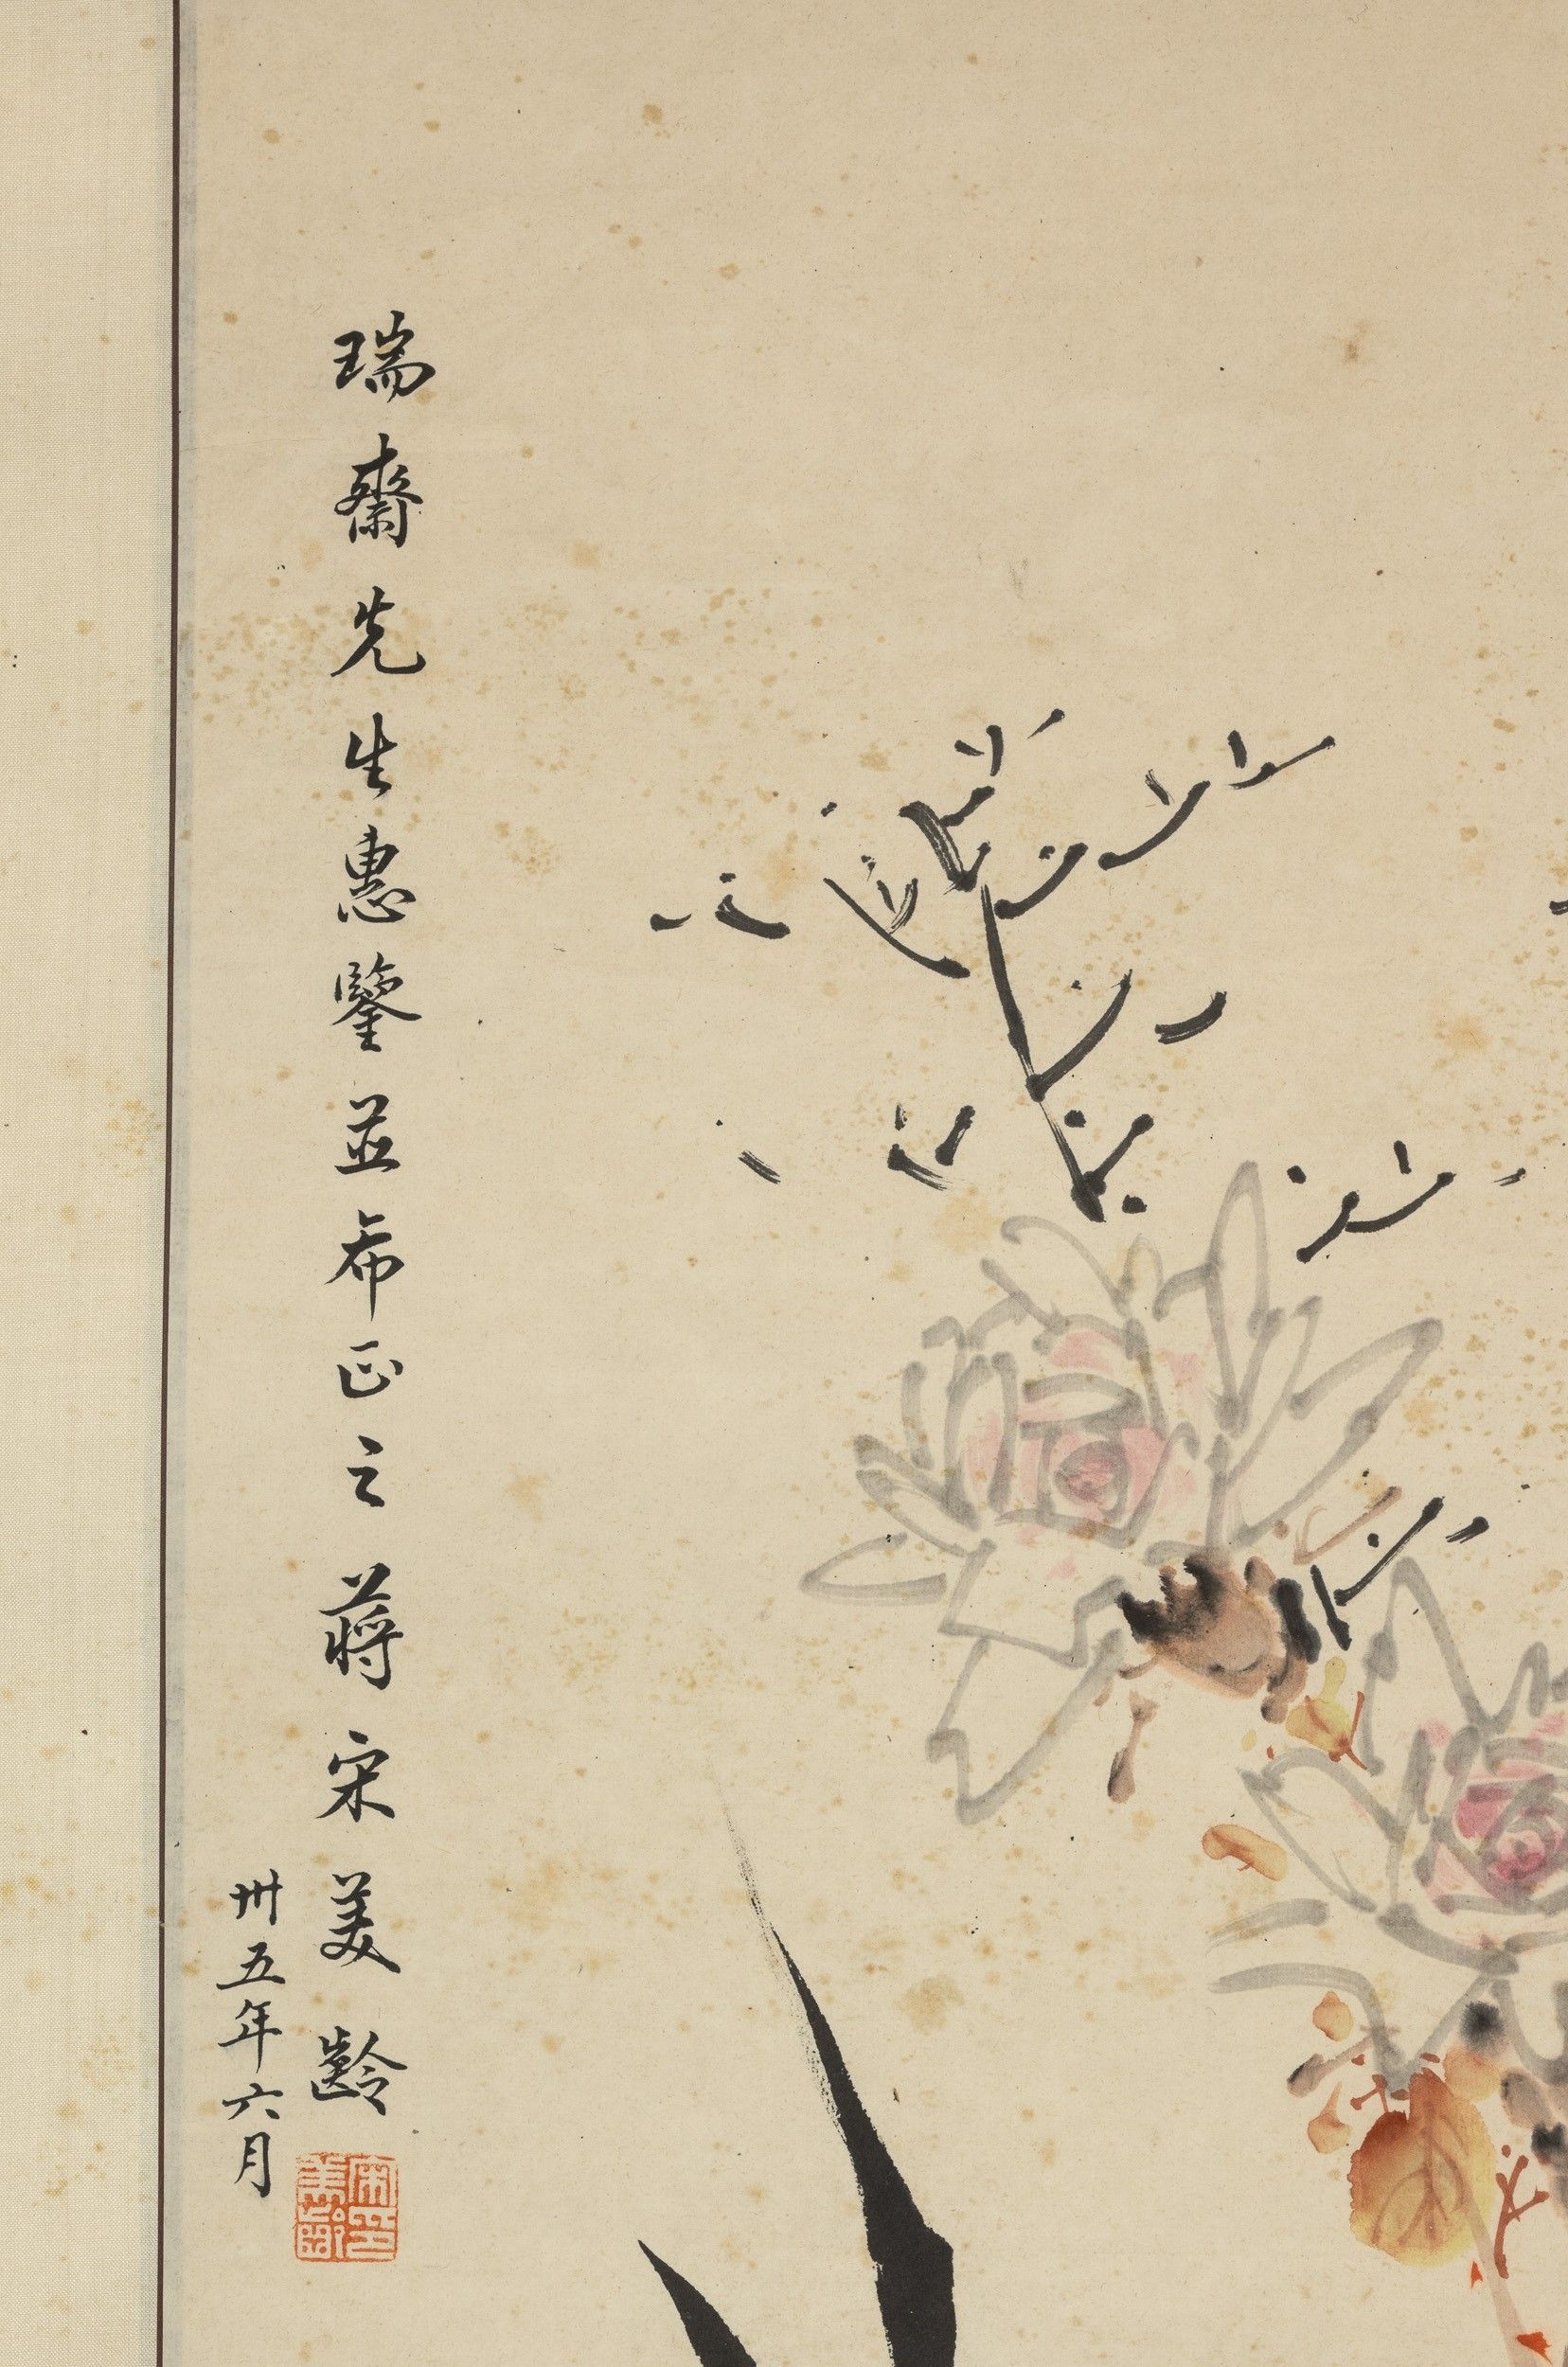 瑞齋先生惠鑒並希正之蔣宋美齡
卅五年六月
宋美齡印